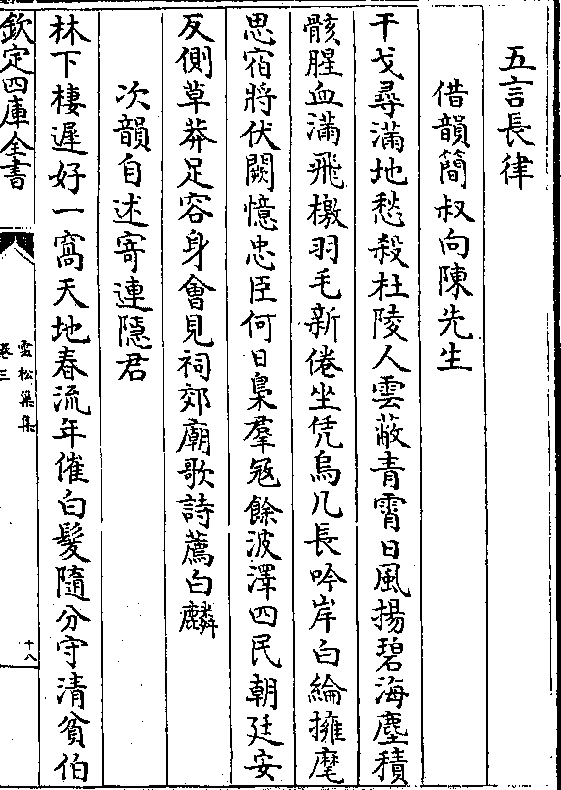 五言長律
借韻簡叔向陳先生
干戈尋滿地愁殺杜陵人雲蔽青霄日風揚碧海塵積
骸腥血滿飛檄羽毛新倦坐凭烏几長吟岸白綸擁麾
思宿將伏闕憶忠臣何日梟羣冦餘波澤四民朝廷安
反側草莽足容身會見祠郊廟歌詩薦白麟
次韻自述寄連隱君
林下棲遲好一窩天地春流年催白髮隨分守清貧伯
欽定四庫全書
雲松巢集
卷三
十八